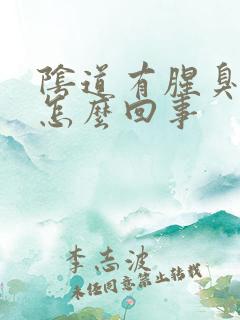 陰道有腥臭
怎麼回事
李志波
未经同意禁止转载